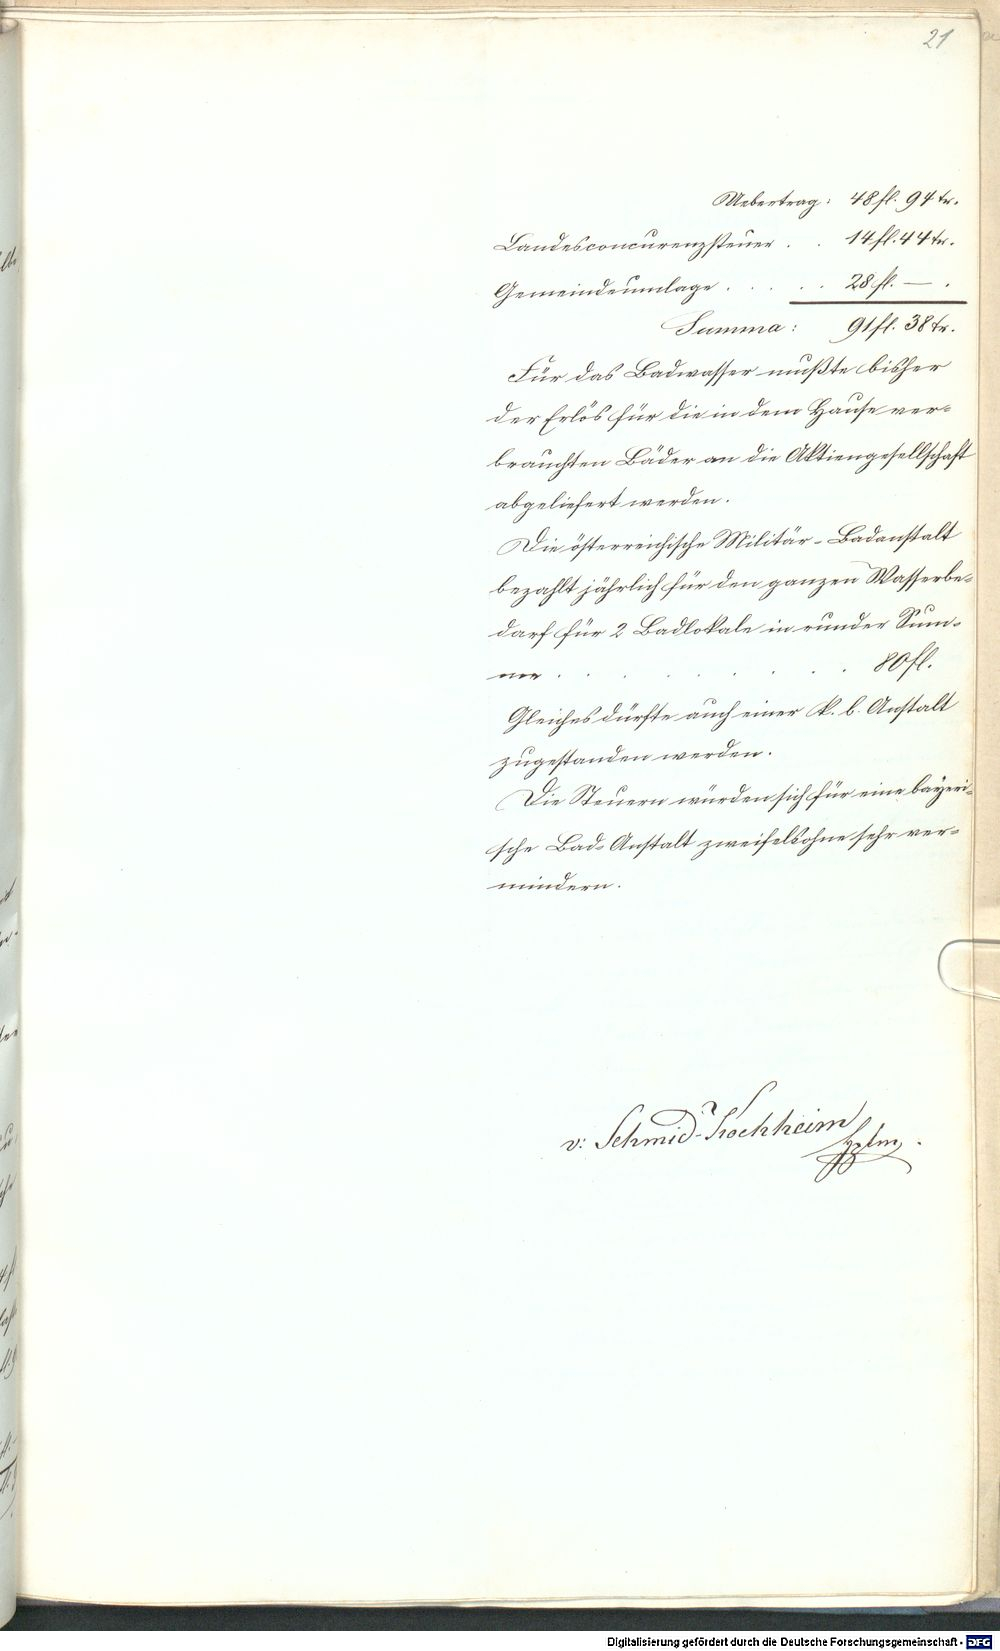 21
Uebertrag: 48 fl. 94 kr.
Landesconcurenzsteuer . . 14 fl. 44 kr.
Gemeindeumlage . . . . . 28 fl. — .
Summa: 91 fl. 38 kr.
Für das Badwasser mußte bisher
der Erlös für die in dem Hause ver-
brauchten Bäder an die Aktiengesellschaft
abgeliefert werden.
Die österreichische Militär-Badanstalt
bezahlt jährlich für den ganzen Wasserbe-
darf für 2 Badlokale in runder Sum-
me . . . . . . 80 fl.
Gleiches dürfte auch einer k. b. Anstalt
zugestanden werden.
Die Steuern würden sich für eine bayeri-
sche Bad-Anstalt zweifelsohne sehr ver-
mindern.
v: Schmid-Kochheim
Hptm.
Digitalisierung gefördert durch die Deutsche Forschungsgemeinschaft - DFG